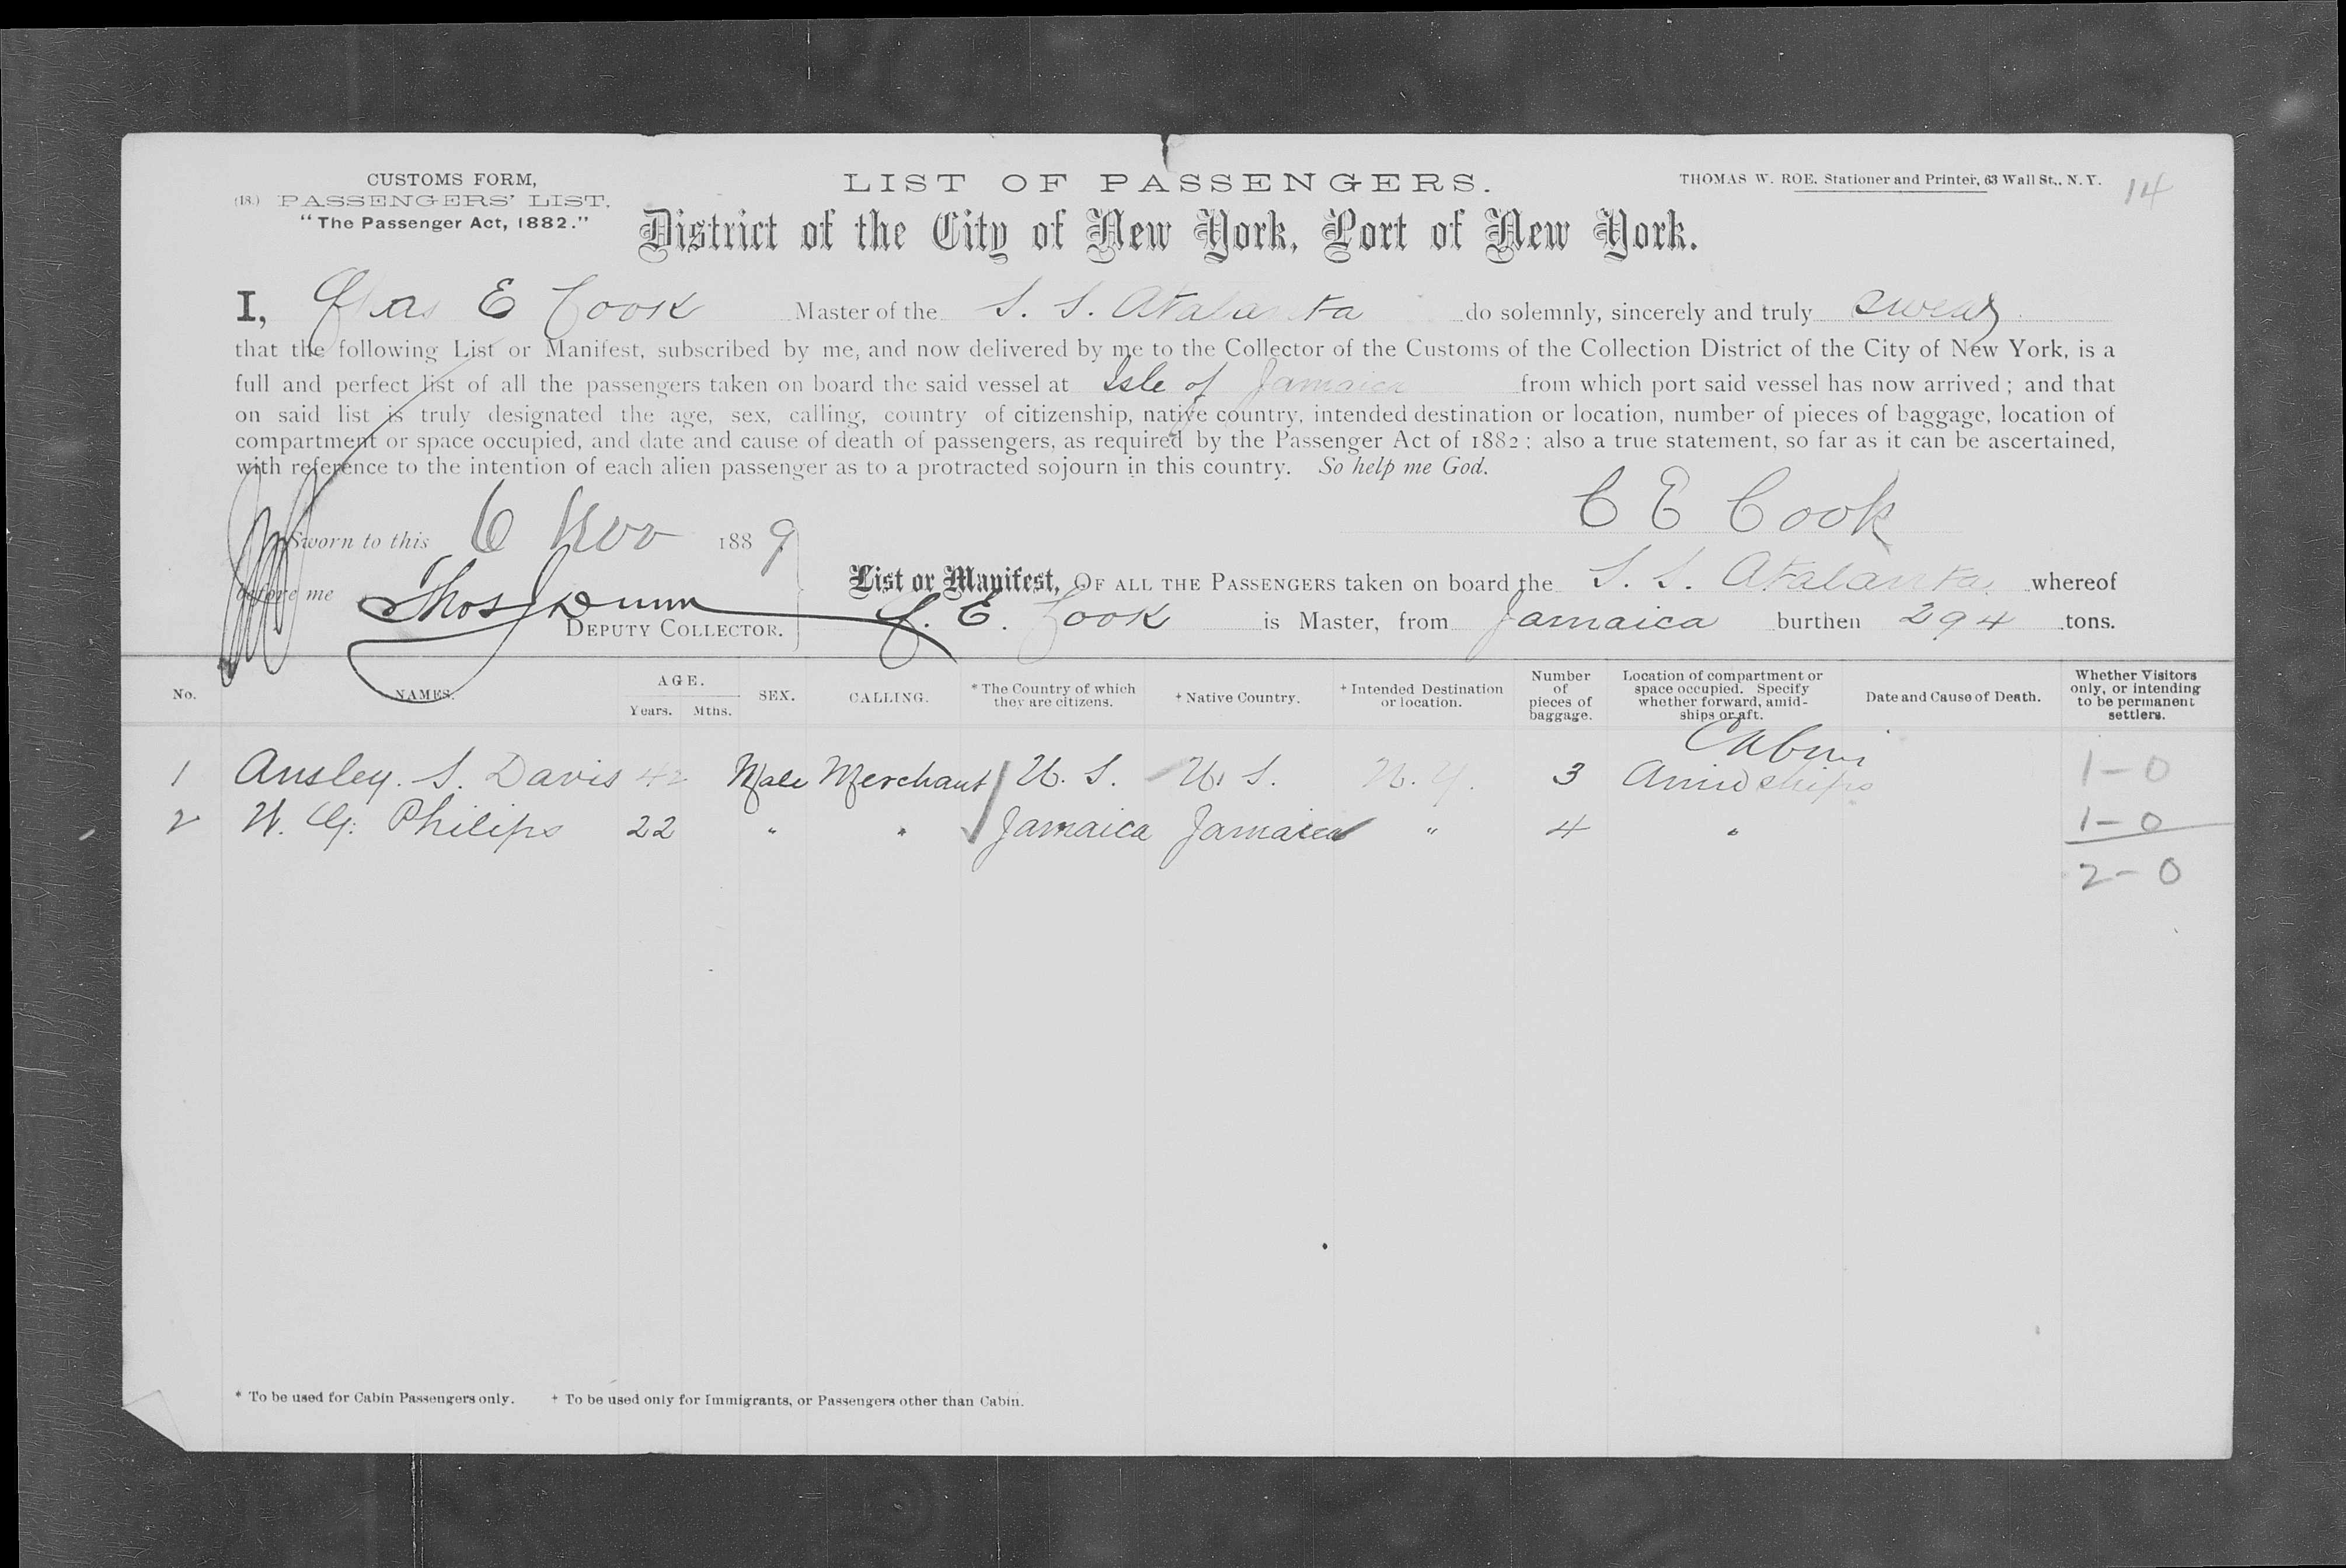 CUSTOMS FORM,
(18.) PASSENGERS' LIST.
"The Passenger Act, 1882."
LIST OF PASSENGERS.
THOMAS W. ROE, Stationer and Printer, 63 Wall St., N. Y.
14
District of the City of New York, Port of New York.
I, Chas E Cook Master of the S. S. Atalanta do solemnly, sincerely and truly swear
that the following List or Manifest, subscribed by me, and now delivered by me to the Collector of the Customs of the Collection District of the City of New York, is a
full and perfect list of all the passengers taken on board the said vessel at Isle of Jamaica from which port said vessel has now arrived; and that
on said list is truly designated the age, sex, calling, country of citizenship, native country, intended destination or location, number of pieces of baggage, location of
compartment or space occupied, and date and cause of death of passengers, as required by the Passenger Act of 1882; also a true statement, so far as it can be ascertained,
with reference to the intention of each alien passenger as to a protracted sojourn in this country. So help me God.
C E Cook
Sworn to this 6 Nov 1889
before me Thos Dunn
DEPUTY COLLECTOR.
List or Manifest, OF ALL THE PASSENGERS taken on board the S. S. Atalanta whereof
C. E. Cook is Master, from Jamaica burthen 294 tons.
No. NAMES. AGE. Years. Mths. SEX. CALLING. * The Country of which they are citizens. † Native Country. † Intended Destination or location. Number of pieces of baggage. Location of compartment or space occupied. Specify whether forward, amidships or aft. Date and Cause of Death. Whether Visitors only, or intending to be permanent settlers.
Cabin
1 Ansley. S. Davis 42 Male Merchant U. S. U. S. N. Y. 3 Amidships 1-0
2 Philips 22 " " Jamaica Jamaica " 4 " 1-0
2-0
* To be used for Cabin Passengers only. † To be used only for Immigrants, or Passengers other than Cabin.